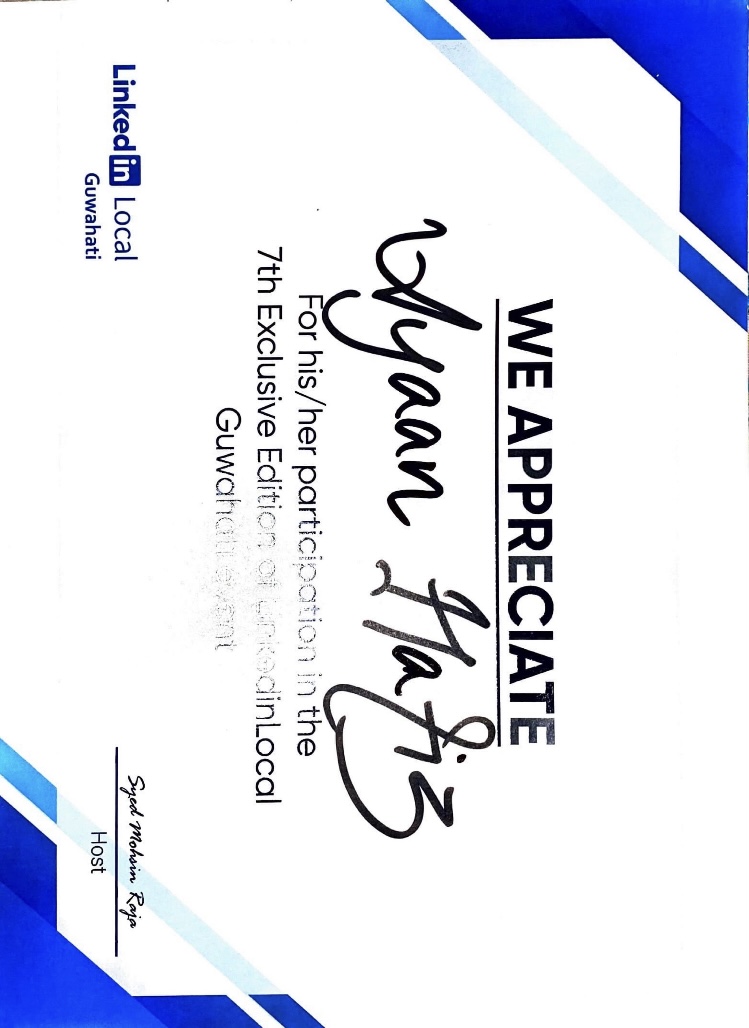 WE APPRECIATE
Ayaan Hafiz
For his/her participation in the
7th Exclusive Edition of LinkedinLocal
Guwahati event
Linkedin Local
Guwahati
Syed Mohsin Raja
Host